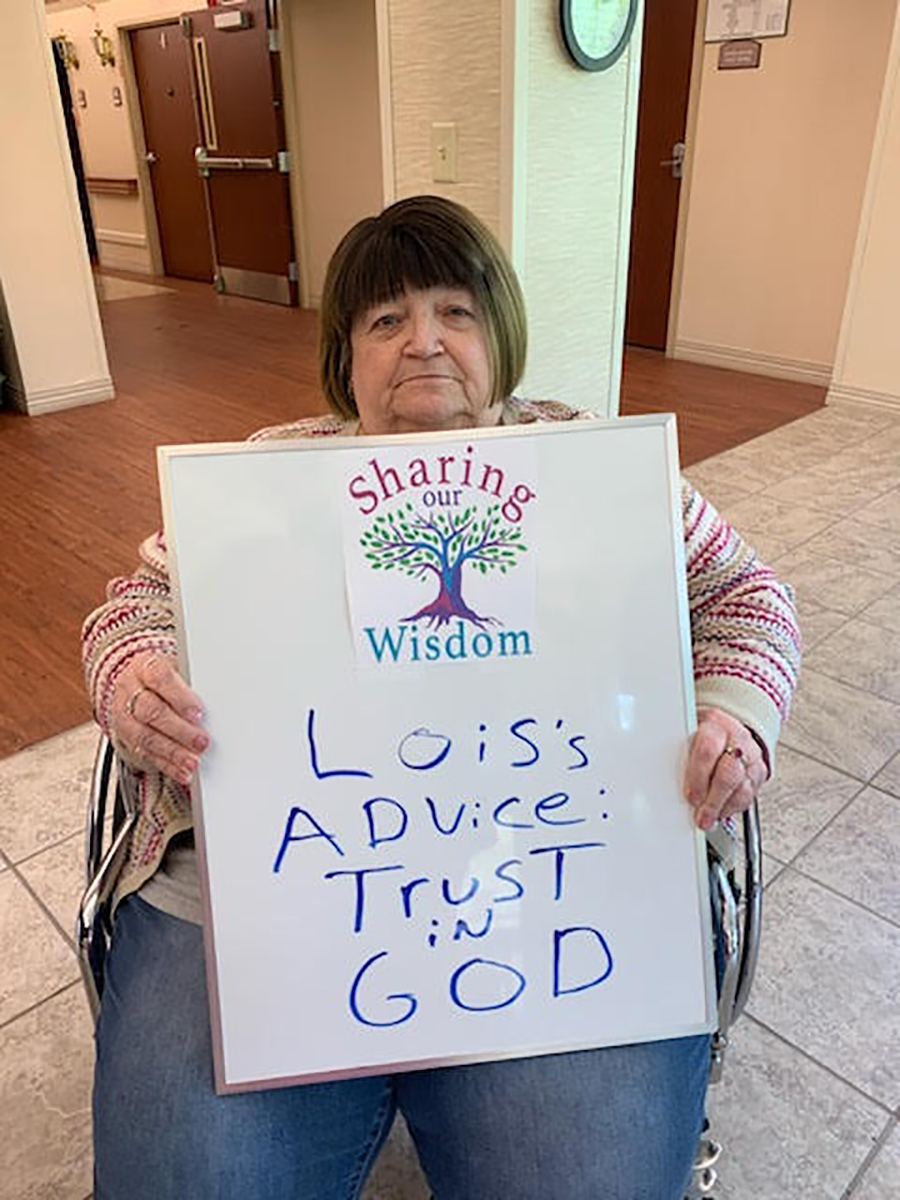 Sharing
our
Wisdom
LOiS's
ADVice:
TrusT
iN
GOD